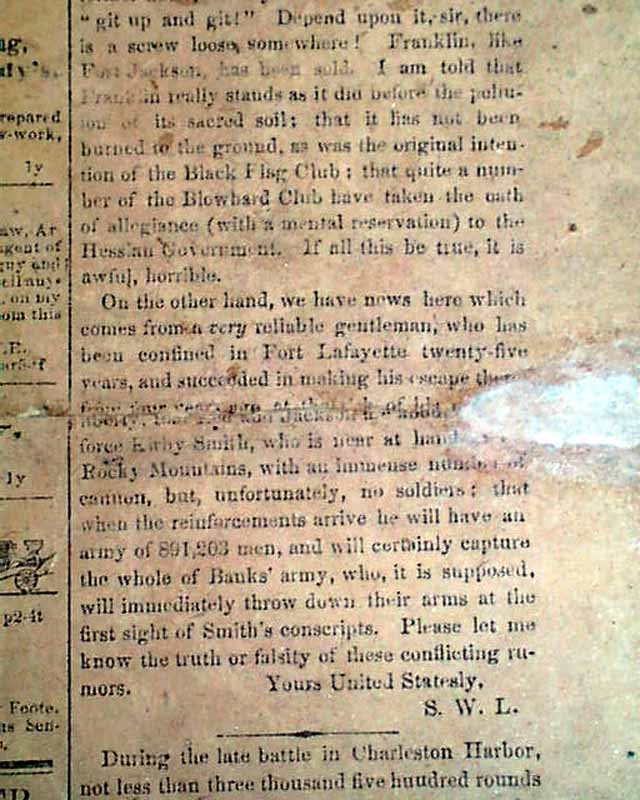 "git up and git!" Depend upon it, sir, there
is a screw loose, somewhere! Franklin, like
Fort Jackson, has been sold. I am told that
Franklin really stands as it did before the pollu-
tion of its sacred soil; that it has not been
burned to the ground, as was the original inten-
tion of the Black Flag Club; that quite a num-
ber of the Blowhard Club have taken the oath
of allegiance (with a mental reservation) to the
Hessian Government. If all this be true, it is
awful, horrible.
On the other hand, we have news here which
comes from a very reliable gentleman, who has
been confined in Fort Lafayette twenty-five
years, and succeeded in making his escape
from four years ago, at the risk of his
and Jackson
force Kirby Smith, who is near at hand
Rocky Mountains, with an immense number of
cannon, but, unfortunately, no soldiers; that
when the reinforcements arrive he will have an
army of 891,203 men, and will certainly capture
the whole of Banks' army, who, it is supposed,
will immediately throw down their arms at the
first sight of Smith's conscripts. Please let me
know the truth or falsity of these conflicting ru-
mors. Yours United Statesly,
S. W. L.
During the late battle in Charleston Harbor,
not less than three thousand five hundred rounds
prepared
-work,
ly
aw, Ar
agent of
on my
om this
ly
p2-4t
Foote.
Sen-